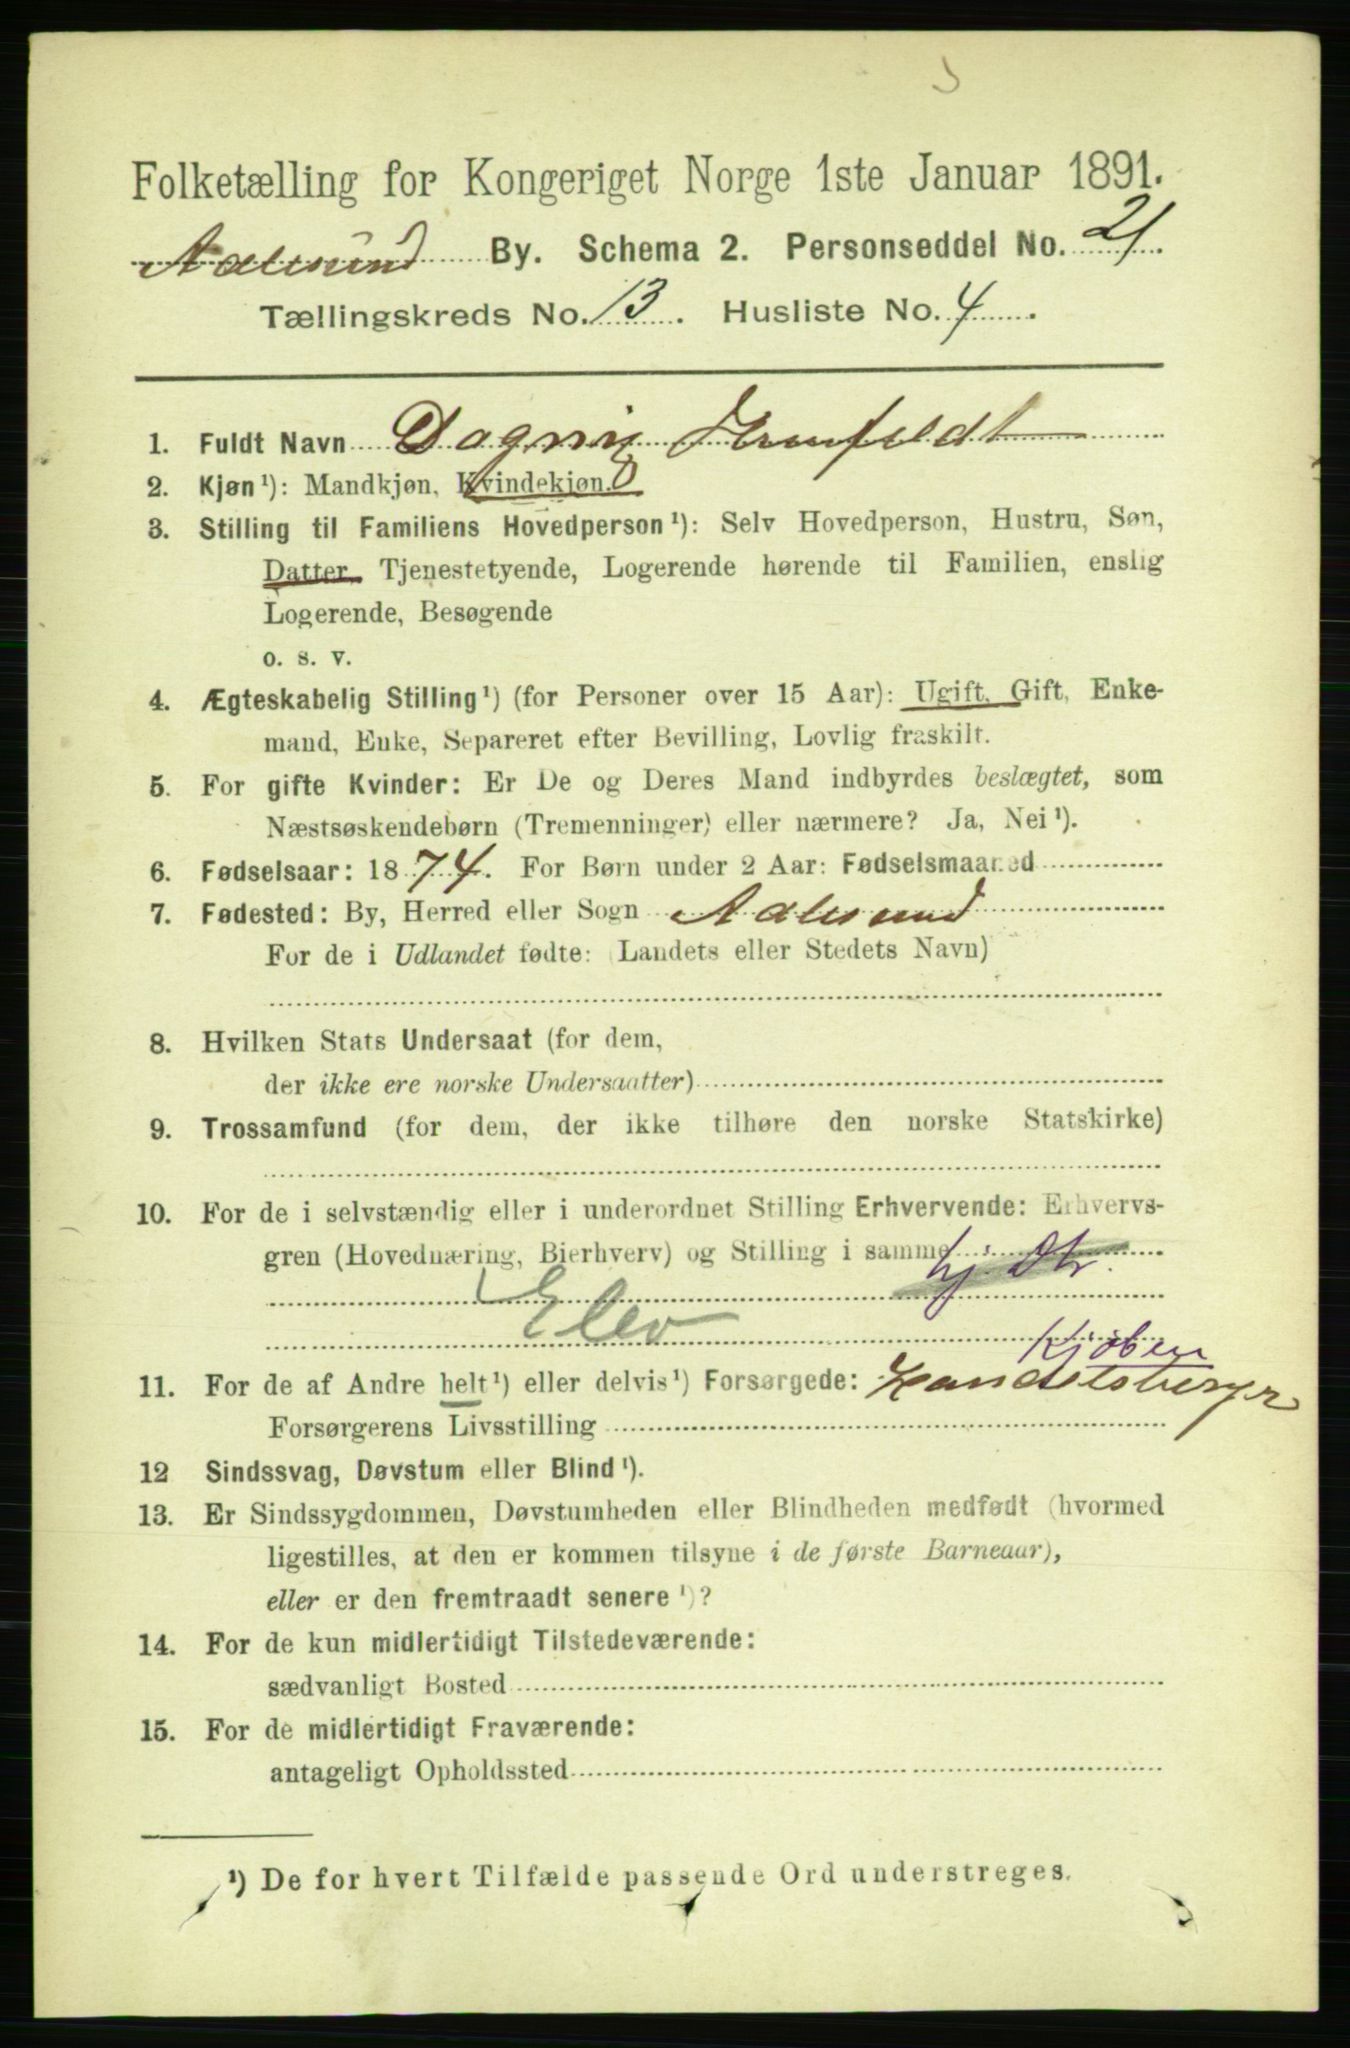 Folketælling for Kongeriget Norge 1ste Januar 1891.
Aalesund By. Schema 2. Personseddel No. 21.
Tællingskreds No. 13. Husliste No. 4.
1. Fuldt Navn Dagny
2. Kjøn¹): Mandkjøn, Kvindekjøn.
3. Stilling til Familiens Hovedperson¹): Selv Hovedperson, Hustru, Søn,
Datter, Tjenestetyende, Logerende hørende til Familien, enslig
Logerende, Besøgende
o. s. v.
4. Ægteskabelig Stilling¹) (for Personer over 15 Aar): Ugift, Gift, Enke-
mand, Enke, Separeret efter Bevilling, Lovlig fraskilt.
5. For gifte Kvinder: Er De og Deres Mand indbyrdes beslægtet, som
Næstsøskendebørn (Tremenninger) eller nærmere? Ja, Nei¹).
6. Fødselsaar: 1874. For Børn under 2 Aar: Fødselsmaaned
7. Fødested: By, Herred eller Sogn Aalesund
For de i Udlandet fødte: (Landets eller Stedets Navn)
8. Hvilken Stats Undersaat (for dem,
der ikke ere norske Undersaatter)
9. Trossamfund (for dem, der ikke tilhøre den norske Statskirke)
10. For de i selvstændig eller i underordnet Stilling Erhvervende: Erhvervs-
gren (Hovednæring, Bierhverv) og Stilling i samme hj. Dtr.
Elev
Kjøben
11. For de af Andre helt¹) eller delvis¹) Forsørgede: Handelsborger
Forsørgerens Livsstilling
12 Sindssvag, Døvstum eller Blind¹).
13. Er Sindssygdommen, Døvstumheden eller Blindheden medfødt (hvormed
ligestilles, at den er kommen tilsyne i de første Barneaar),
eller er den fremtraadt senere¹)?
14. For de kun midlertidigt Tilstedeværende:
sædvanligt Bosted
15. For de midlertidigt Fraværende:
antageligt Opholdssted
¹) De for hvert Tilfælde passende Ord understreges.